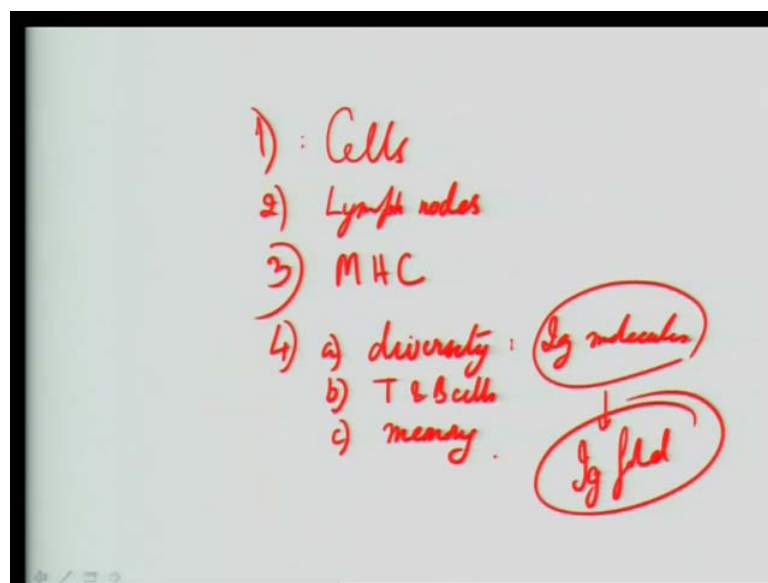 1) : Cells
2) Lymph nodes
3) MHC
4) a) diversity : Ig molecules
b) T & B cells
c) memory.
Ig fold